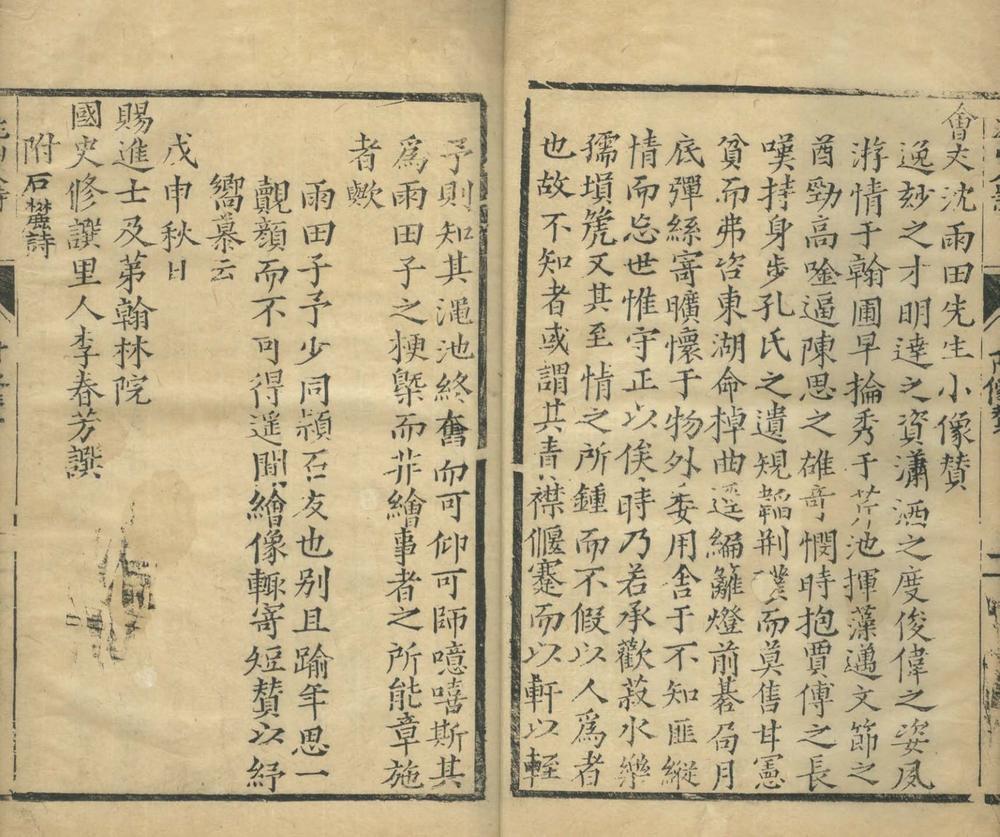 會丈沈雨田先生小像賛
逸玅之才明達之資瀟洒之度俊偉之姿夙
游情于翰圃早掄秀于芹池揮藻邁文節之
酋勁高唫逼陳思之雄竒憫時抱賈傅之長
嘆持身步孔氏之遺䂓韜荆璞而莫售甘憲
貧而弗咨東湖命棹曲逕編籬燈前碁局月
底彈絲寄曠懷于物外委用舍于不知匪縱
情而忘世惟守正以俟時乃若承歡菽水樂
孺塤箎又其至情之所鍾而不假以人為者
也故不知者或謂其青襟偃蹇而以軒以輊
予則知其澠池終奮而可仰可師噫嘻斯其
為雨田子之梗槩而非繪事者之所能章施
者歟
雨田子予少同穎石友也别且踰年思一
覿顔而不可得遥聞繪像輙寄短賛以紓
嚮慕云
戊申秋日
賜進士及第翰林院
國史修譔里人李春芳譔
附石麓詩